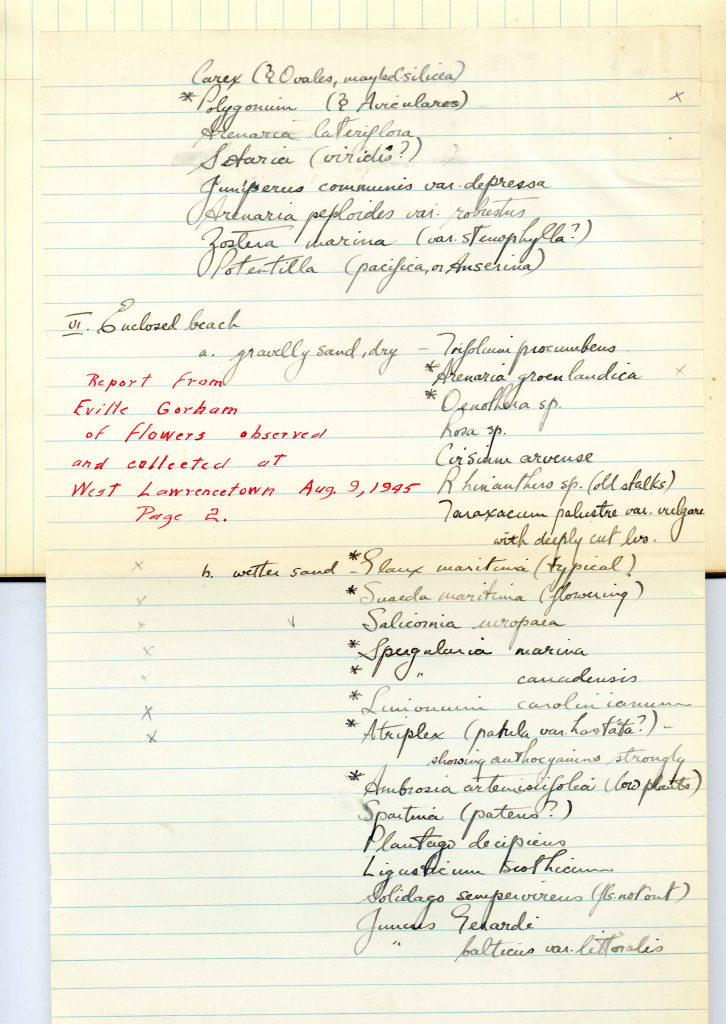 Carex (§ Ovales, maybe silicea)
* Polygonum (§ Aviculares) x
Arenaria lateriflora
Setaria (viridis?)
Juniperus communis var. depressa
Arenaria peploides var. robusta
Zostera marina (var. stenophylla?)
Potentilla (pacifica, or Anserina)
VI. Enclosed beach
a. gravelly sand, dry – Trifolium procumbens
* Arenaria groenlandica x
* Oenothera sp.
Rosa sp.
Cirsium arvense
Rhinanthus sp. (old stalks)
Taraxacum palustre var. vulgare
with deeply cut lvs.
Report From
Eville Gorham
of flowers observed
and collected at
West Lawrencetown Aug. 9, 1945
Page 2.
x b. wetter sand – * Glaux maritima (typical)
x * Suaeda maritima (flowering)
x v Salicornia europaea
x * Spergularia marina
* " canadensis
x * Limonium carolinianum
x * Atriplex (patula var. hastata?) –
showing anthocyanins strongly
* Ambrosia artemisiifolia (low plants)
Spartina (patens?)
Plantago decipiens
Ligusticum scothicum
Solidago sempervirens (fls. not out)
Juncus Gerardi
" balticus var. littoralis